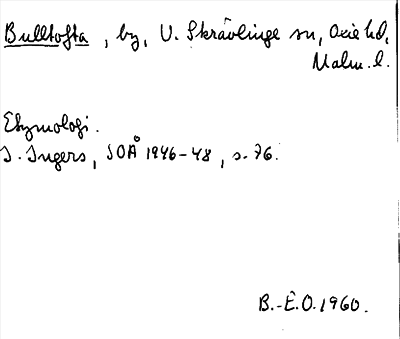 Bulltofta, by, V. Skrävlinge sn, Oxie hd,
Malm. l.
Etymologi.
I. Ingers, SOÅ 1946-48, s. 76.
B.-E.O. 1960.